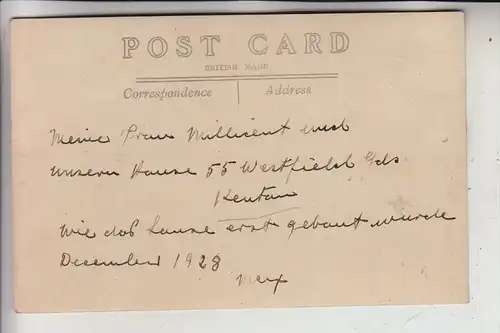 POST CARD
BRITISH MADE
Correspondence
Address
Meine Frau Millicent und
unsern Hause 55 Westfield Gds
Kenton
Wie das Hause erst gebaut wurde
December 1928
Max